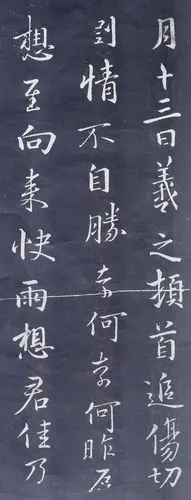 月十三日羲之頓首追傷切
剝情不自勝奈何奈何昨反
想至向來快雨想君佳乃